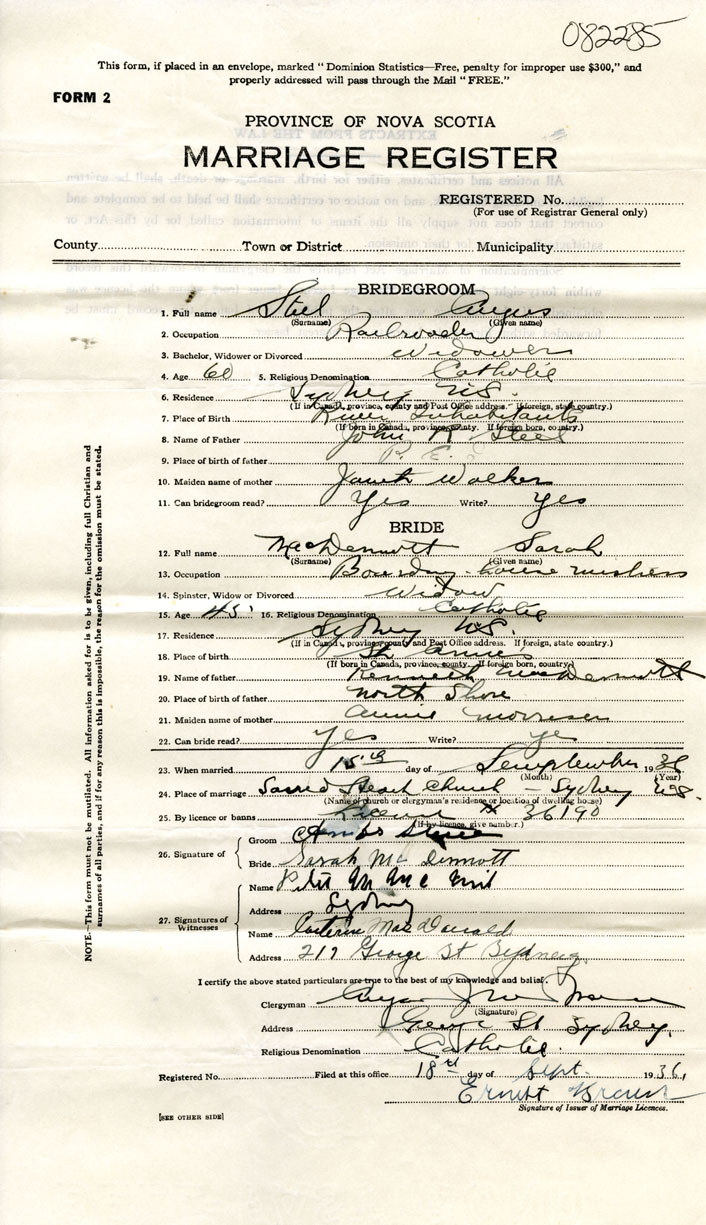 082285
This form, if placed in an envelope, marked "Dominion Statistics—Free, penalty for improper use $300," and
properly addressed will pass through the Mail "FREE."
FORM 2
PROVINCE OF NOVA SCOTIA
MARRIAGE REGISTER
REGISTERED No.
(For use of Registrar General only)
County Town or District Municipality
BRIDEGROOM
1. Full name Steel Angus
(Surname) (Given name)
2. Occupation Railroader
3. Bachelor, Widower or Divorced Widower
4. Age 60 5. Religious Denomination Catholic
6. Residence Sydney N.S.
(If in Canada, province, county and Post Office address. If foreign, state country.)
7. Place of Birth River Inhabitants
(If born in Canada, province, county. If foreign born, country.)
8. Name of Father John R Steel
9. Place of birth of father P. E.
10. Maiden name of mother Janet Walker
11. Can bridegroom read? Yes Write? Yes
BRIDE
12. Full name MacDermott Sarah
(Surname) (Given name)
13. Occupation Boarding-house
14. Spinster, Widow or Divorced Widow
15. Age 45 16. Religious Denomination Catholic
17. Residence Sydney N.S.
(If in Canada, province, county and Post Office address. If foreign, state country.)
18. Place of Birth St Anns
(If born in Canada, province, county. If foreign born, country.)
19. Name of father Kenneth MacDermott
20. Place of birth of father North Shore
21. Maiden name of mother Annie Morrison
22. Can bride read? Yes Write? Yes
23. When married 15th day of September 1936
(Month) (Year)
24. Place of marriage Sacred Heart Church - Sydney N.S.
(Name of church or clergyman's residence or location of dwelling house)
25. By licence or banns License # 36190
(If by licence, give number.)
26. Signature of
Groom
Bride Sarah McDermott
27. Signatures of Witnesses
Name Peter M McNeil
Address Sydney
Name MacDonald
Address 217 George St Sydney
I certify the above stated particulars are true to the best of my knowledge and belief.
Clergyman
(Signature)
Address George St Sydney.
Religious Denomination Catholic.
Registered No. Filed at this office 18th day of Sept. 1936,
Ernest Brown
Signature of Issuer of Marriage Licences.
[SEE OTHER SIDE]
NOTE.—This form must not be mutilated. All information asked for is to be given, including full Christian and
surnames of all parties, and if for any reason this is impossible, the reason for the omission must be stated.